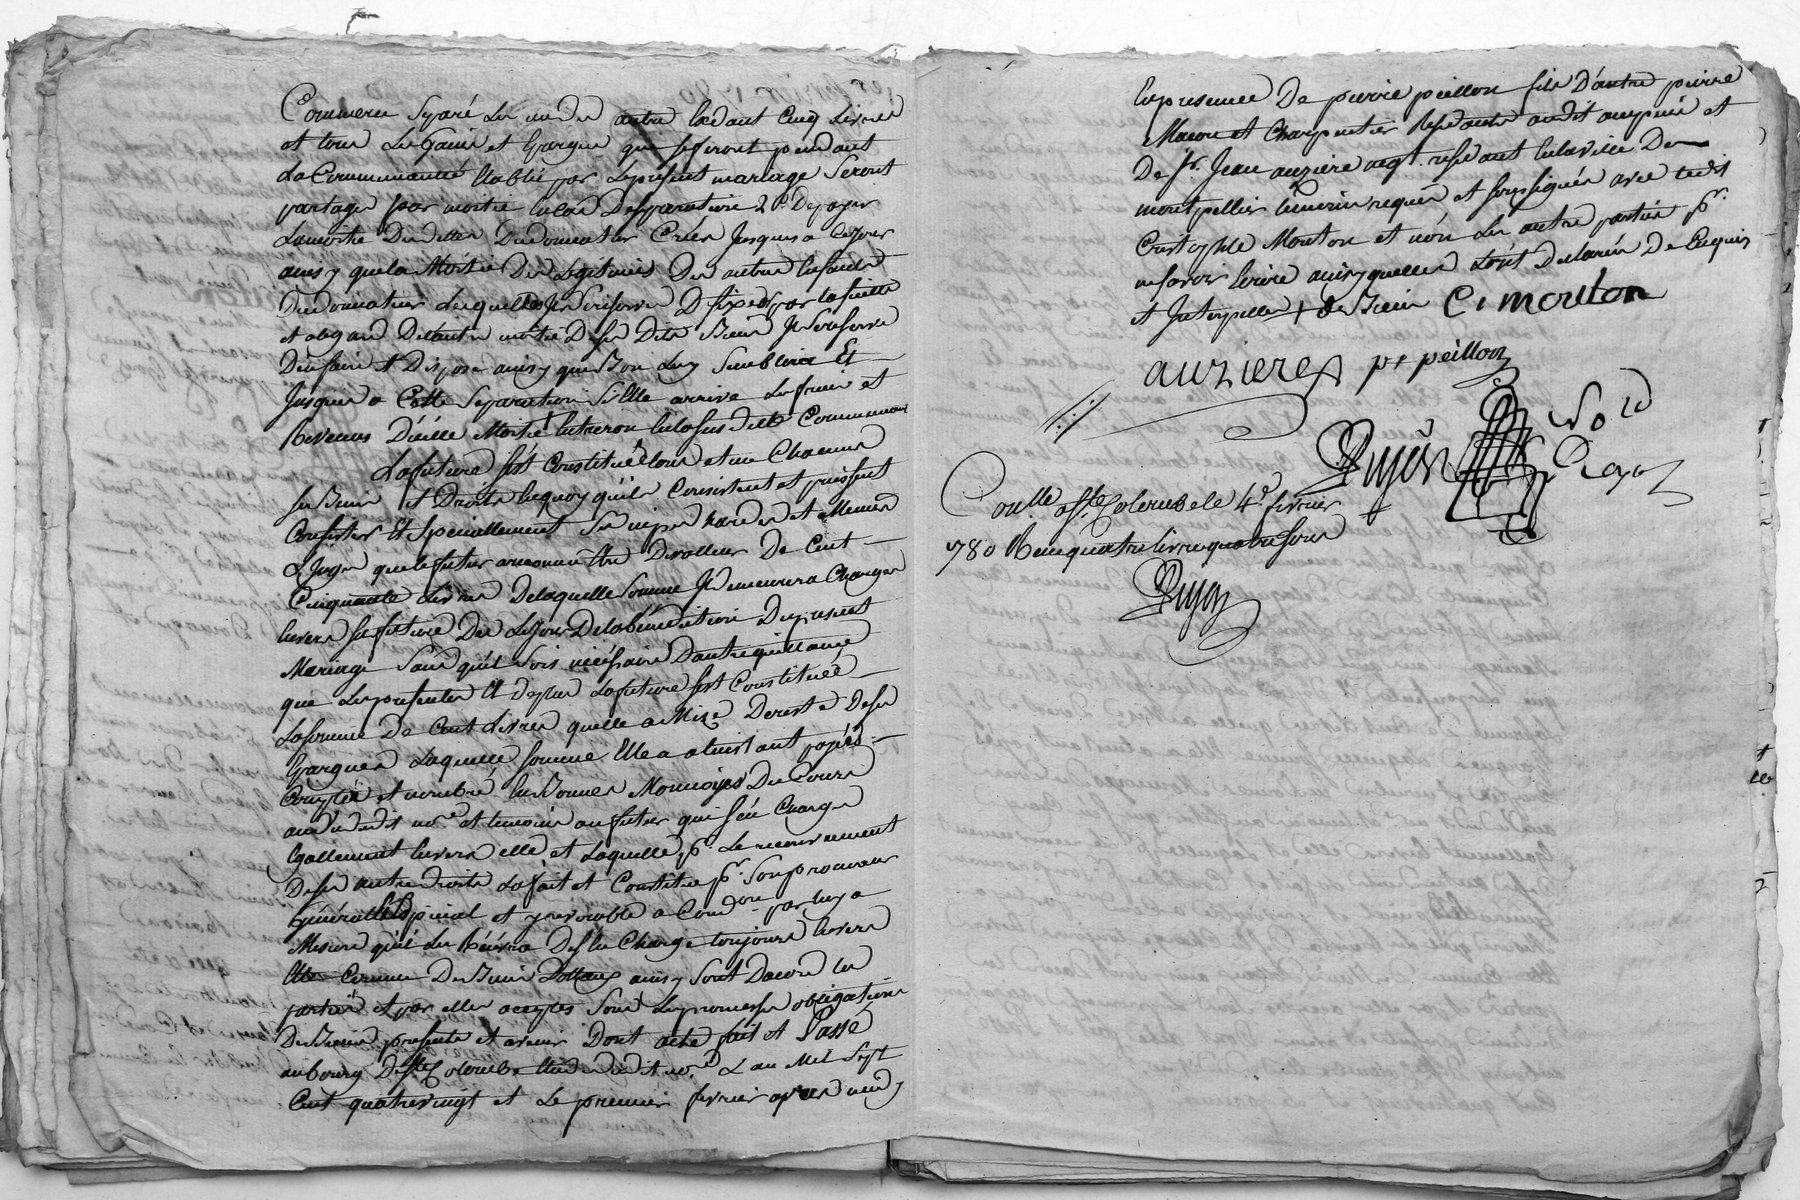 Commern separé les uns des autres cedant Cinq Livres
et tous Les Gains et Epargnes qui se feront pendant
La Communauté Etablie par Le present mariage Seront
partagés par moitié en cas De separation 2° De payer
Lamoitié Des dettes Du donnateur Crées Jusques a ce jour
ainsy que la Moitié Des Legitimes Des autres Enfants
Du donnateur Lesquelles Il se reserve D fixer par la suitte
et a legard De lautre moitié De ses Dits Biens Il se reserve
D'en faire et Disposer ainsy que Bon Luy Semblera Et
Jusques a Cette Separation Si Elle arrive Les fruits et
Revenus D'icelle Moitié Entreron en la susditte Communauté
La future s'est Constituée tous et un Chacuns
ses Biens et Droits En quoy qu'ils Consistent et puissent
Consister Et Specialement Ses nipes hardes et Menus
Linges que le futur a reconnu Etre De valleur De Cent
Cinquante Livres De laquelle Somme Il demeurera Chargé
Envers sa future Des Le jour De la bénédiction Du present
Mariage Sans qu'il Sois nécéssaire D'autre quittance
que Les presentes Et De plus La future s'est Constituée
La somme De Cent Livres quelle a Mise De reste De ses
Epargnes Laquelle somme Elle a a linstant payée
Comptée et nombrée En Bonnes Monnoyes Du Cours
au vu dudit no.re et temoins au futur qui s'en Charge
Egallement Envers elle et Laquelle pr. Le recouvrement
De ses autres droits La fait et Constitue pr. Son procureur
Générall Espécial et yrevocable a Cond.on par luy a
Mesure qu'il Les Recevra De s'en Charger toujours Envers
Elle Comme De Biens Dottaux ainsy Sont Dacord Les
parties et par elles acceptés Sous Les promesses obligations
De Biens presents et avenir Dont acte fait et Passé
au bourg De Ste Colombe Etude dudit no.re L'an Mil Sept
Cent quatre vingt et Le premier fevrier apres midy
En presence De pierre peillon fils D'autre pierre
Macon et Charpentier residants audit ampuis et
De Sr. Jean auziere negt. residant En la ville De
montpellier temoins requis et soussignés avec ledit
Cristophle Mouton et nón Les autres parties pr.
ne savoir Ecrire ainsy quelles L'ont Declaré De Ce enquis
et Interpellés + de Biens C. mouton
auzieres p+ peillon
Dujon N.re R.al
Con.lle a Ste Colombe le 4.e fevrier
1780 Recu quatre livres quatre sous
Dujon